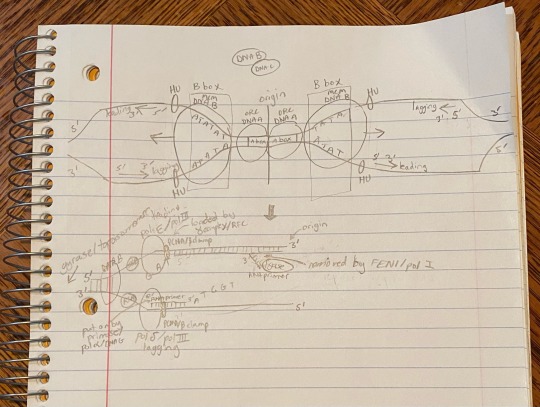 DNA B
DNA C
HU
B box
mcm
DNA B
origin
ORC
DNA A
ORC
DNA A
B box
mcm
DNA B
HU
leading
3'
5'
lagging
3' 5'
5'
ATATAT
A box
A box
ATATA
ATATA
ATAT
3'
5' 3'
lagging
HU
HU
5' 3'
leading
3'
gyrase/topoisomerase
leading
pol ε/pol III
loaded by
γ complex/RFC
PCNA/β clamp
origin
3'
removed by FEN1/pol I
DNA B
5'
3'
put on by
primase/
pol α/DNAG
T A T G G T
PCNA/β clamp
pol δ/pol III
lagging
5'